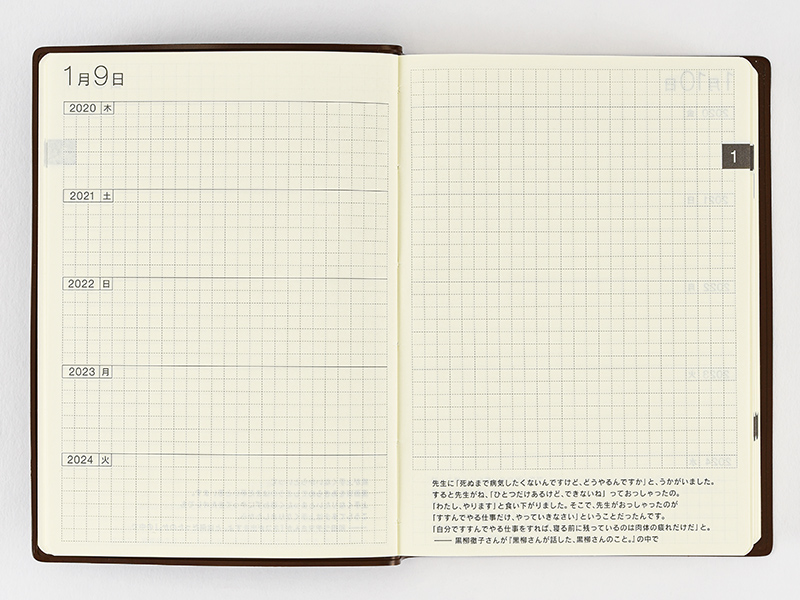 1月9日
2020 木
2021 土
2022 日
2023 月
2024 火
1
先生に「死ぬまで病気したくないんですけど、どうやるんですか」と、うかがいました。
すると先生がね、「ひとつだけあるけど、できないね」っておっしゃったの。
「わたし、やります」と食い下がりました。そこで、先生がおっしゃったのが
「すすんでやる仕事だけ、やっていきなさい」ということだったんです。
「自分ですすんでやる仕事をすれば、寝る前に残っているのは肉体の疲れだけだ」と。
—— 黒柳徹子さんが『黒柳さんが話した、黒柳さんのこと。』の中で